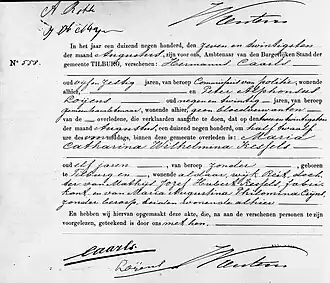 In het jaar een duizend negen honderd, den zeven en twintigsten
der maand Augustus, zijn voor ons, Ambtenaar van den Burgerlijken Stand der
gemeente TILBURG, verschenen: Hermanus Caarls
N° 558.
oud vijf en zestig jaren, van beroep Commissaris van politie, wonende
alhier, en Peter Alphonsus
Roijens oud negen en twintig jaren, van beroep
gemeentebambte, wonende alhier, geen bloedverwanten
van de overledene, die verklaarden aangifte te doen, dat op
Augustus, een duizend negen honderd, om half twaalf
ure voormiddag, binnen deze gemeente overleden is: Maria
Catharina Wilhelmina Kessels
oud elf jaren, van beroep zonder, geboren
te Tilburg en wonende aldaar, wijk Reit, doch
ter van Mathijs Jozef Hubert Kessels, fabri
kant, en van Maria Augustina Philomina
zonder beroep, beiden wonende alhier
En hebben wij hiervan opgemaakt deze akte, die, na aan de verschenen personen te zijn
voorgelezen, geteekend is door ons met hen.
Caarls
Roijens